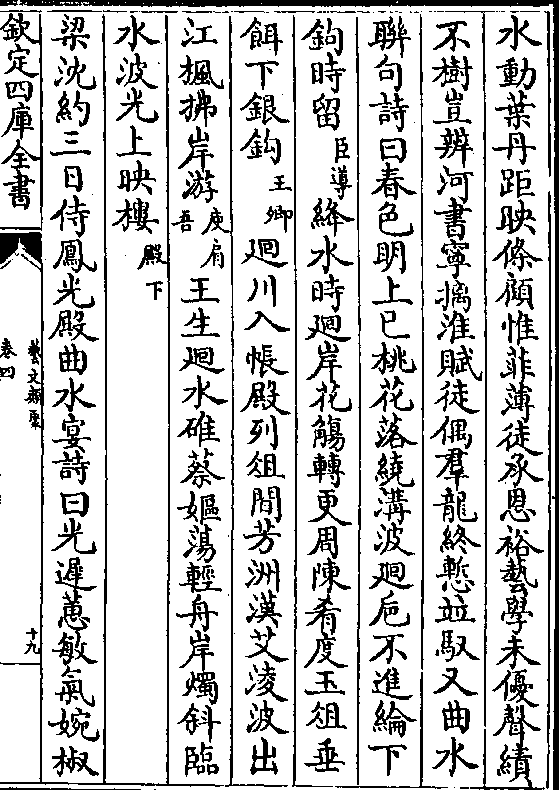 水動葉丹距映條顧惟菲薄徒承恩裕藝學未優聲績
不樹豈辨河書寧摛淮賦徒偶羣龍終慙並馭又曲水
聯句詩曰春色明上已桃花落繞溝波廻巵不進綸下
鉤時留臣導絳水時廻岸花觴轉更周陳肴度玉俎垂
餌下銀鈎王卿廻川入帳殿列俎間芳洲漢艾淩波出
江楓拂岸游庾肩吾王生廻水碓蔡嫗蕩輕舟岸燭斜臨
水波光上映樓殿下
梁沈約三日侍鳳光殿曲水宴詩曰光遲蕙敏氣婉椒
欽定四庫全書
藝文類聚
卷四
十九